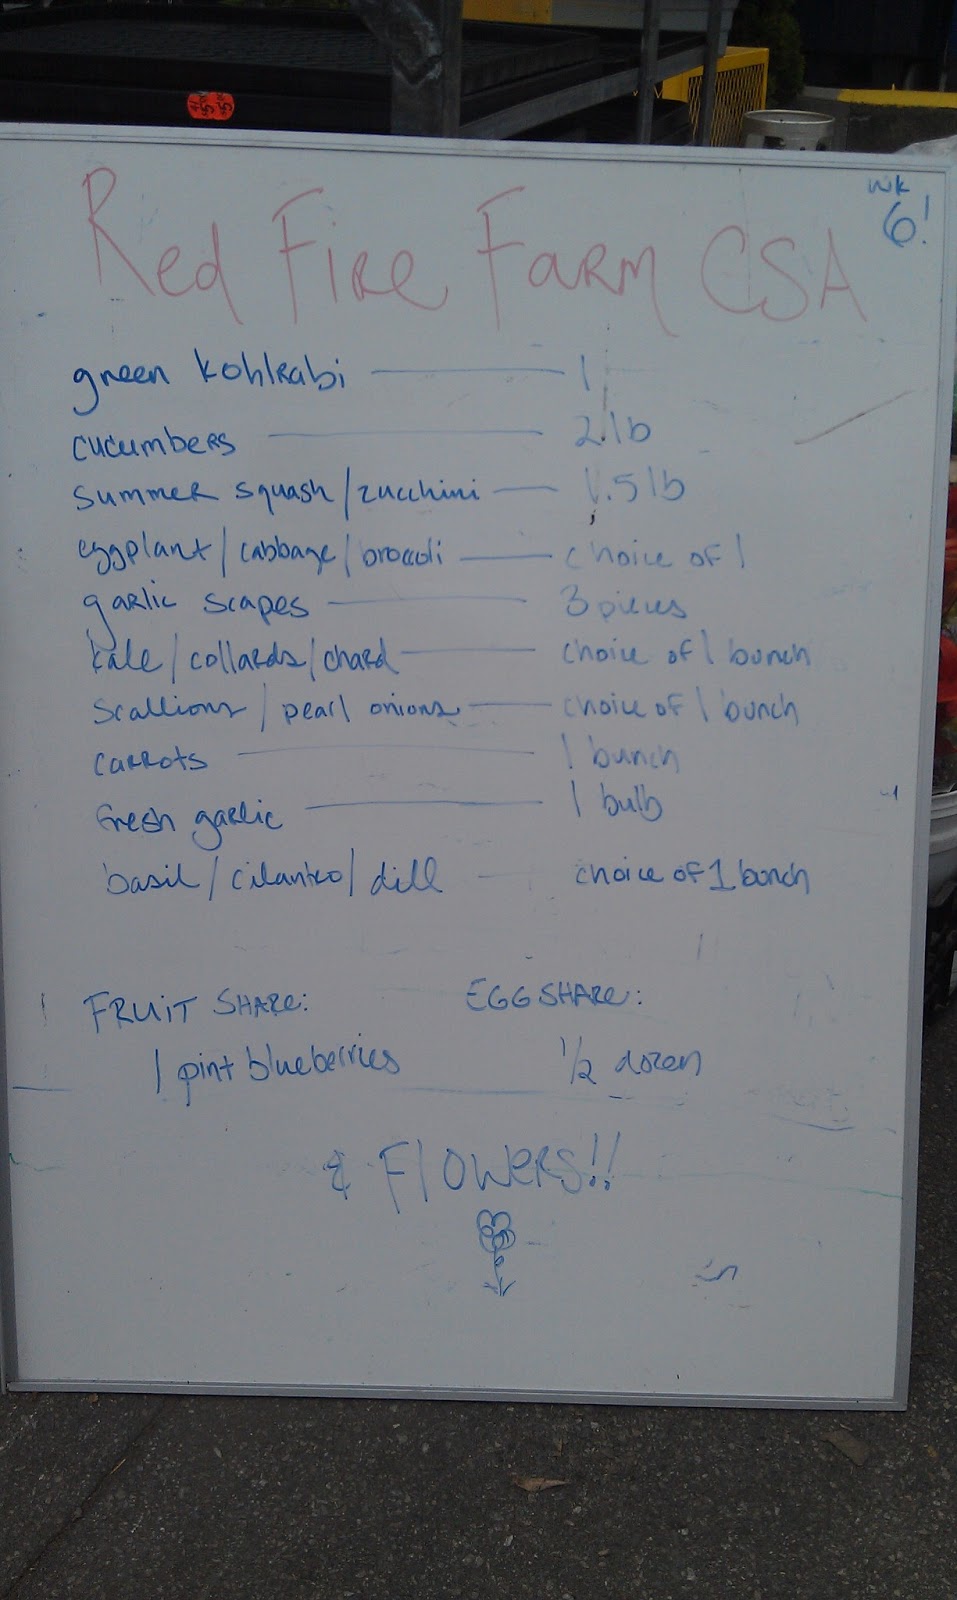 wk
6!
Red Fire Farm CSA
green kohlrabi — 1
cucumbers — 2 lb
summer squash/zucchini — 1.5 lb
eggplant/cabbage/broccoli — choice of 1
garlic scapes — 3 pieces
kale/collards/chard — choice of 1 bunch
scallions/pearl onions — choice of 1 bunch
carrots — 1 bunch
fresh garlic — 1 bulb
basil/cilantro/dill — choice of 1 bunch
FRUIT SHARE: EGG SHARE:
1 pint blueberries 1/2 dozen
& FlOWERS!!